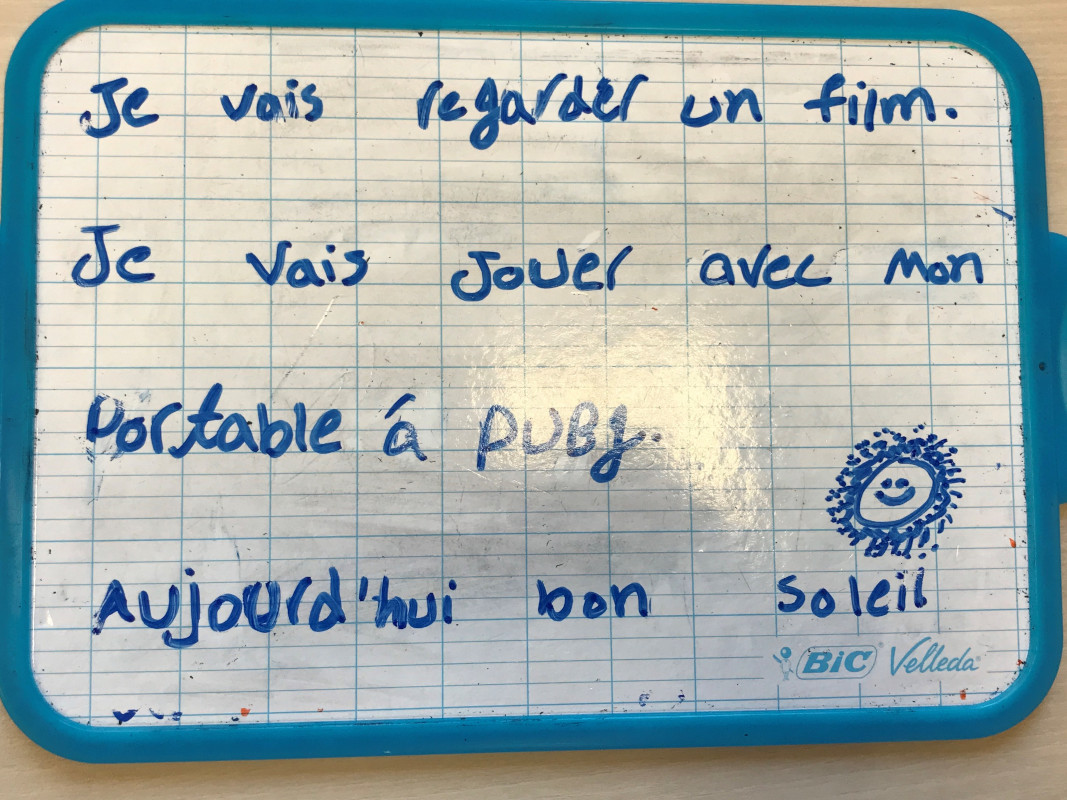 Je vais regarder un film.
Je vais jouer avec mon
portable á PUBg.
Aujourd'hui bon soleil
BiC Velleda